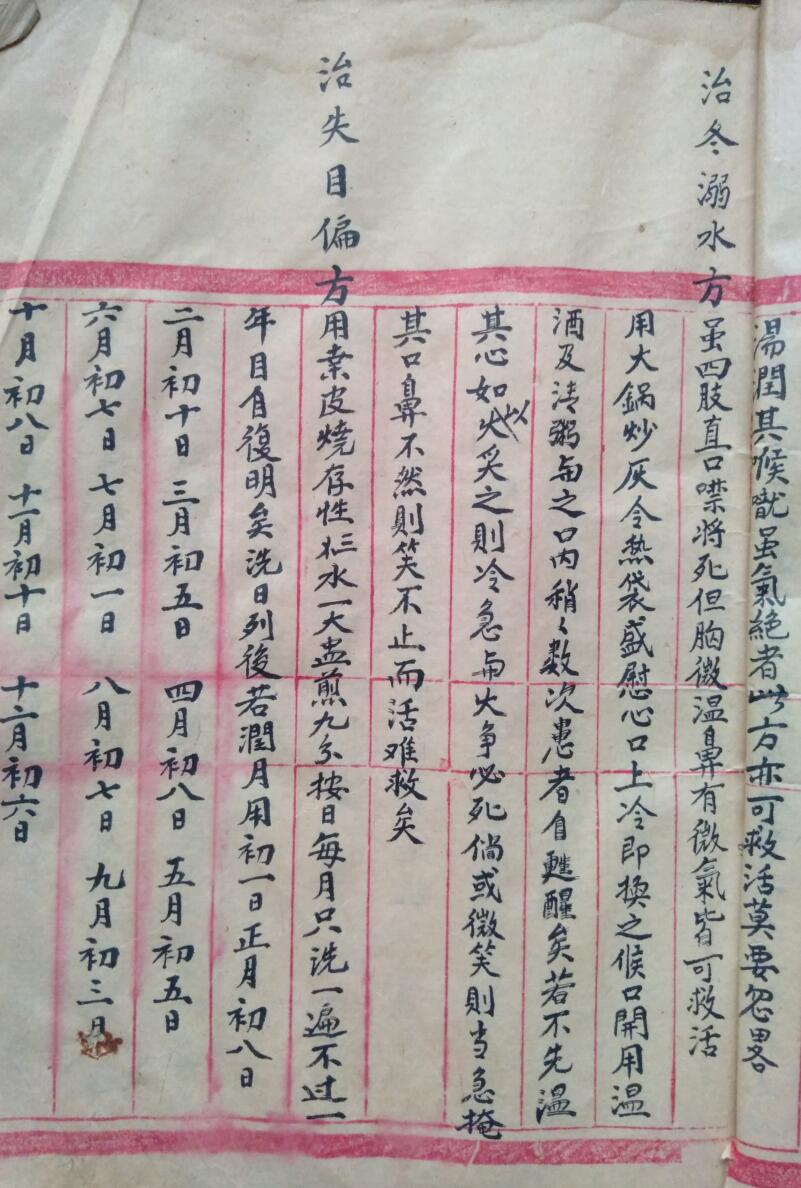 湯潤其喉嚨虽氣絕者此方亦可救活莫要忽畧
治冬溺水方
虽四肢直口噤将死但胸微温鼻有微氣皆可救活
用大鍋炒灰令熱袋盛慰心口上冷即換之候口開用温
酒及清粥與之口内稍々数次患者自甦醒矣若不先温
其心如以火炙之則冷急與火争必死倘或微笑則当急掩
其口鼻不然則笑不止而活难救矣
治失目偏方
用桒皮燒存性水一大盅煎九分按日每月只洗一遍不过一
年目自復明矣洗日列後若潤月用初一日正月初八日
二月初十日 三月初五日 四月初八日 五月初五日
六月初七日 七月初一日 八月初七日 九月初三日
十月初八日 十一月初十日 十二月初六日